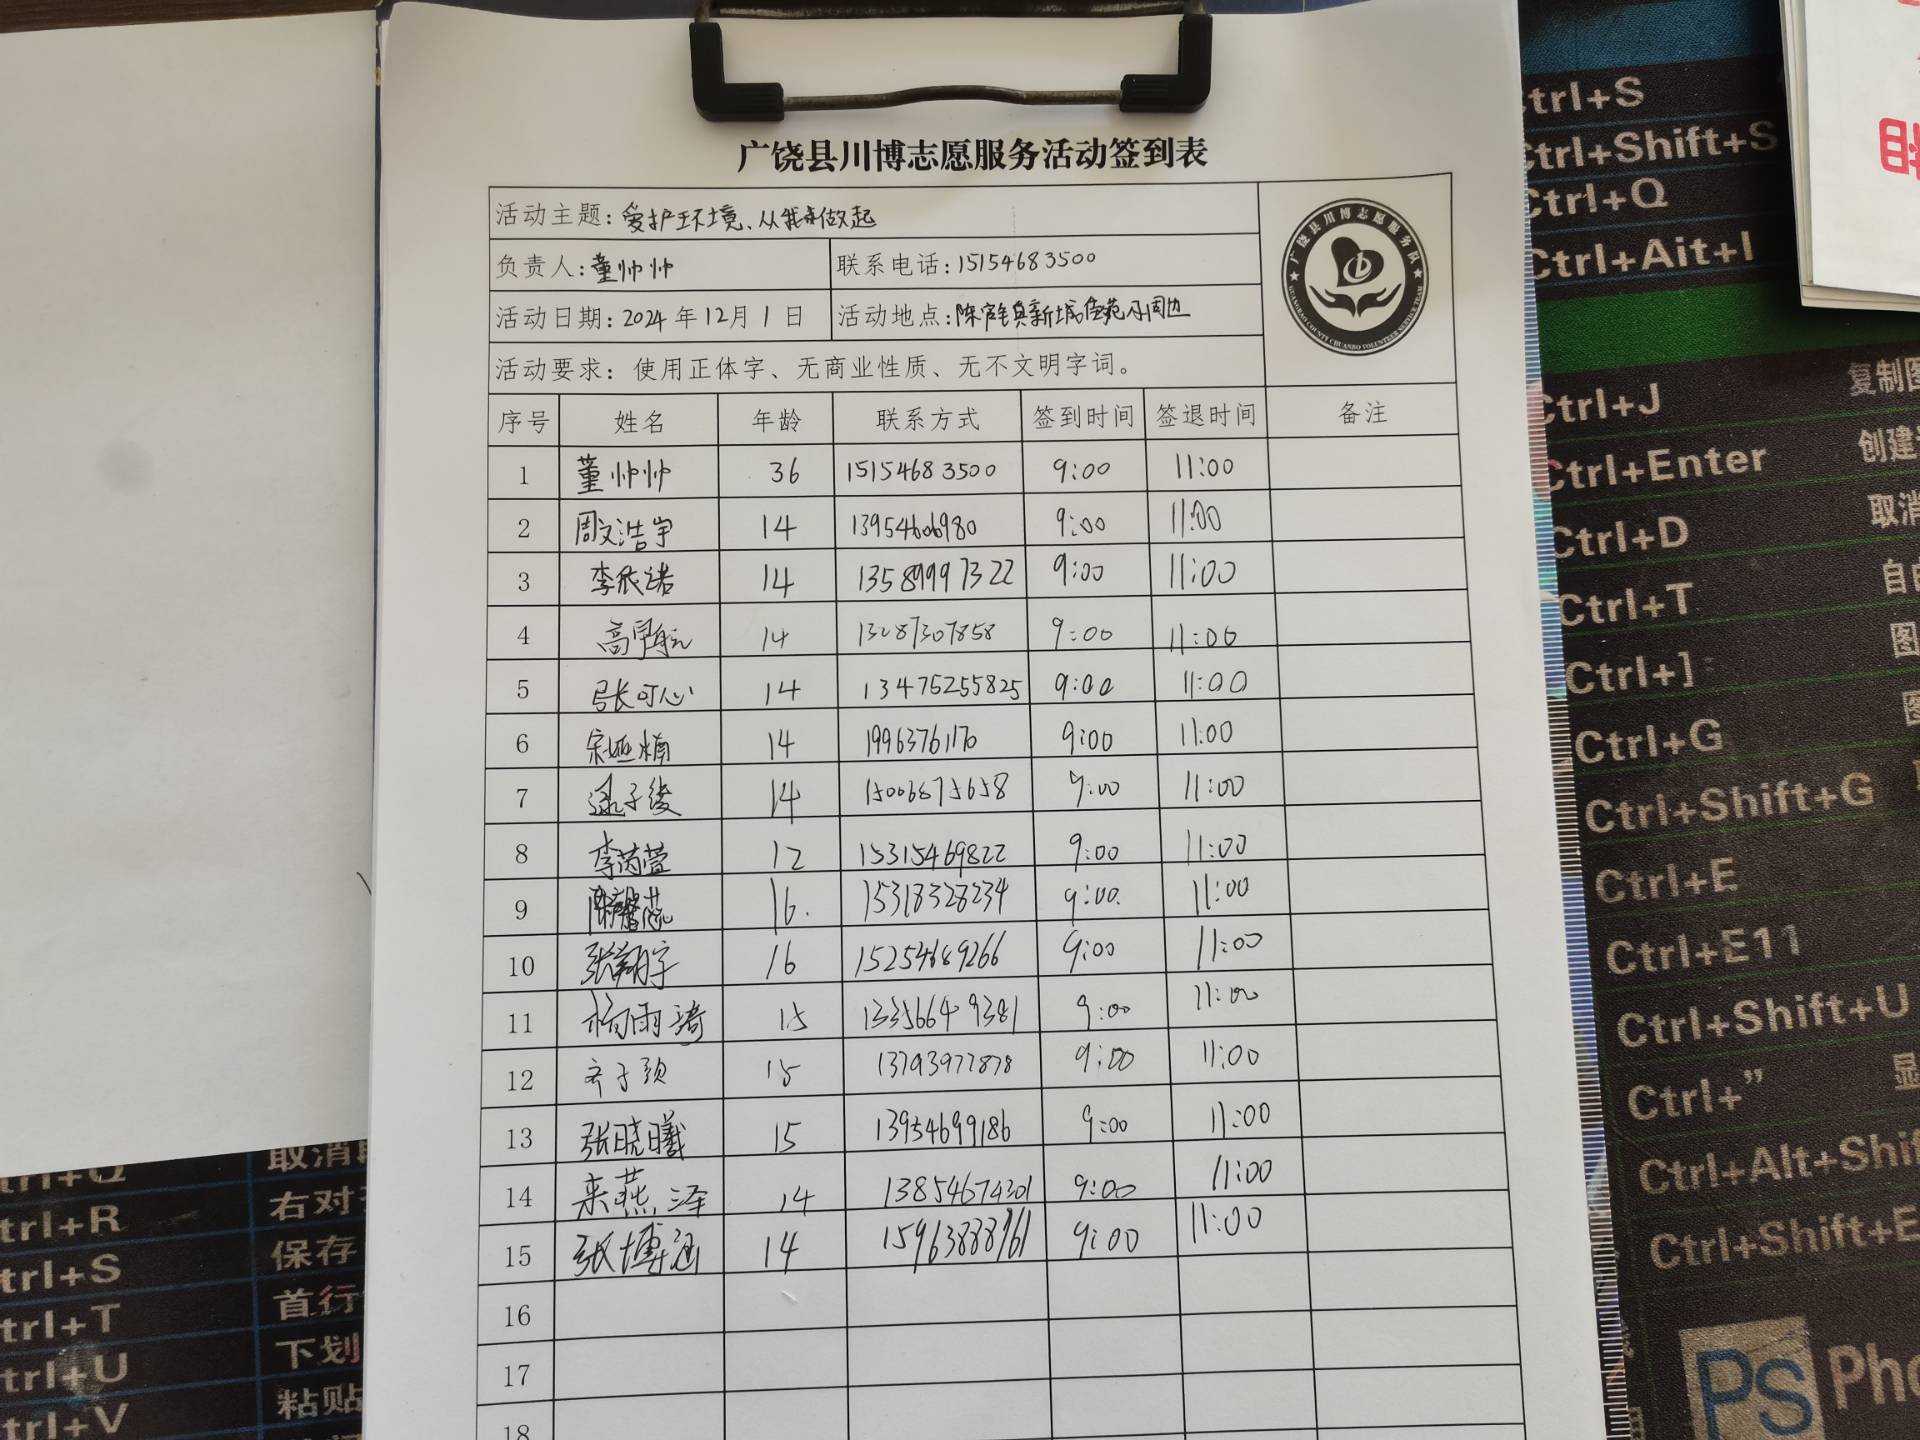 广饶县川博志愿服务活动签到表
活动主题:爱护环境、从我做起
负责人:董帅帅 联系电话:15154683500
活动日期:2024年12月1日 活动地点:陈官镇新城佳苑及周边
活动要求:使用正体字、无商业性质、无不文明字词。
广饶县川博志愿服务队
GUANGRAO COUNTY CHUANBO VOLUNTEER SERVICE TEAM
序号 姓名 年龄 联系方式 签到时间 签退时间 备注
1 董帅帅 36 15154683500 9:00 11:00
2 周文浩宇 14 13954606980 9:00 11:00
3 李依诺 14 13589997322 9:00 11:00
4 高宇航 14 13287307858 9:00 11:00
5 张可心 14 13475255825 9:00 11:00
6 宋娅楠 14 19963761170 9:00 11:00
7 逯子绫 14 15006875658 9:00 11:00
8 李芮萱 12 15315469822 9:00 11:00
9 16. 15318328234 9:00. 11:00
10 张翔宇 16 15254689266 9:00 11:00
11 杨雨漪 15 13356649381 9:00 11:00
12 齐子颂 15 13793977878 9:00 11:00
13 张晓曦 15 13954699186 9:00 11:00
14 来燕泽 14 13854674301 9:00 11:00
15 张博涵 14 15963888961 9:00 11:00
16
17
18
Ctrl+S
Ctrl+Shift+S
Ctrl+Q
Ctrl+Ait+I
Ctrl+J 复制图
Ctrl+Enter 创建
Ctrl+D 取消
Ctrl+T 自由
Ctrl+] 图
Ctrl+G 图
Ctrl+Shift+G
Ctrl+E
Ctrl+E11
Ctrl+Shift+U
Ctrl+” 显
Ctrl+Alt+Shif
Ctrl+Shift+E
Ps Pho
trl+Q 取消
trl+R 右对
trl+S 保存
trl+T 首行
trl+U 下划
trl+V 粘贴